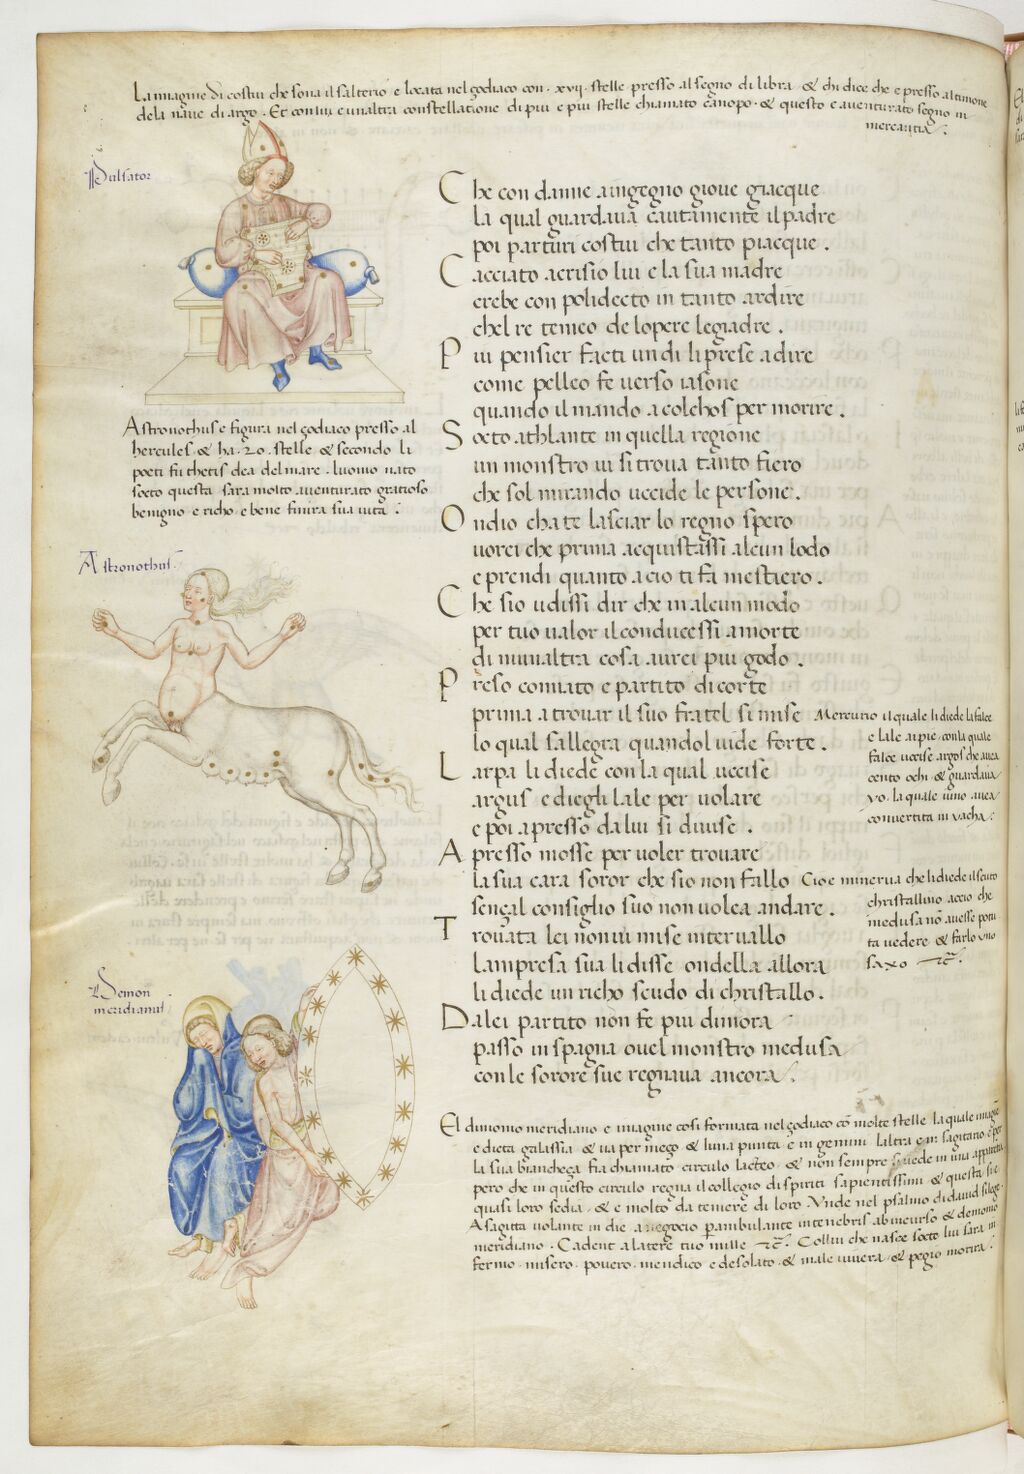 La imagine di costui che sona il salterio e locata nel çodiaco con · xvij · stelle presso al segno di libra · & chi dice che e presso al timone
dela naue di argo · Et con lui e un altra constellatione di piu e piu stelle chiamato canopo · & questo e auenturato segno in
mercantia ·
Pulsator
Che con danne a ingegno gioue giacque
la qual guardaua cautamente il padre
poi parturi costui che tanto piacque .
Cacciato acrisio lui e la sua madre
crebe con polidecto in tanto ardire
chel re temeo de lopere legiadre .
Piu pensier facti un di li prese a dire
come pelleo fe uerso iasone
quando il mando a colchos per morire .
Socto athlante in quella regione
un monstro ui si troua tanto fiero
che sol mirando uccide le persone .
Ondio cha te lasciar lo regno spero
uorei che prima acquistassi alcun lodo
e prendi quanto a cio ti fa mestiero .
Che sio udissi dir che in alcun modo
per tuo ualor il conducessi a morte
di niunaltra cosa aurei piu godo .
Preso comiato e partito di corte
prima a trouar il suo fratel si mise
lo qual sallegra quandol uide forte .
Larpa li diede con la qual uccise
argus e diegli lale per uolare
e poi apresso da lui si diuise .
Apresso mosse per uoler trouare
la sua cara soror che sio non fallo
sençal consiglio suo non uolea andare .
Trouata lei non ui mise interuallo
lampresa sua li disse ondella allora
li diede un richo scudo di christallo .
Da lei partito non fe piu dimora
passo in spagna ouel monstro medusa
con le sorore sue regnaua ancora .
Astronothus e figura nel çodiaco presso al
hercules & ha · 20 · stelle & secondo li
poeti fu thetis dea del mare · luomo nato
socto questa sara molto auenturato gratioso
benigno e richo e bene finira sua uita .
Astronothus
Mercurio il quale li diede la falce
e lale ai pie con la quale
falce uccise argos che auea
cento ochi & guardaua
yo · la quale iuno auea
conuertita in vacha ·
Cioe minerua che li diede il scuto
christallino accio che
medusa nō auesse potu
ta uedere & farlo uno
saxo
Demon
meridianus
El dimonio meridiano e imagine cosi formata nel çodiaco cō molte stelle la quale imagīe
e dicta galassia · & ua per meço & luna punta e in gemini laltra e in sagitario e per
la sua biancheça fra chiamato circulo lacteo · & non sempre si uede in una apparitia
pero che in questo circulo regna il collegio di spiriti sapientissimi & questa sie
quasi loro sedia · & e molto da temere di loro · Vnde nel psalmo di dauid si lege ·
A sagitta uolante in die a negocio perambulante in tenebris ab incurso & demonio
meridiano · Cadent a latere tuo mille · Collui che nasce socto lui sara in
fermo · misero · pouero · mendico e desolato · & male uiuera · & pegio morira ·